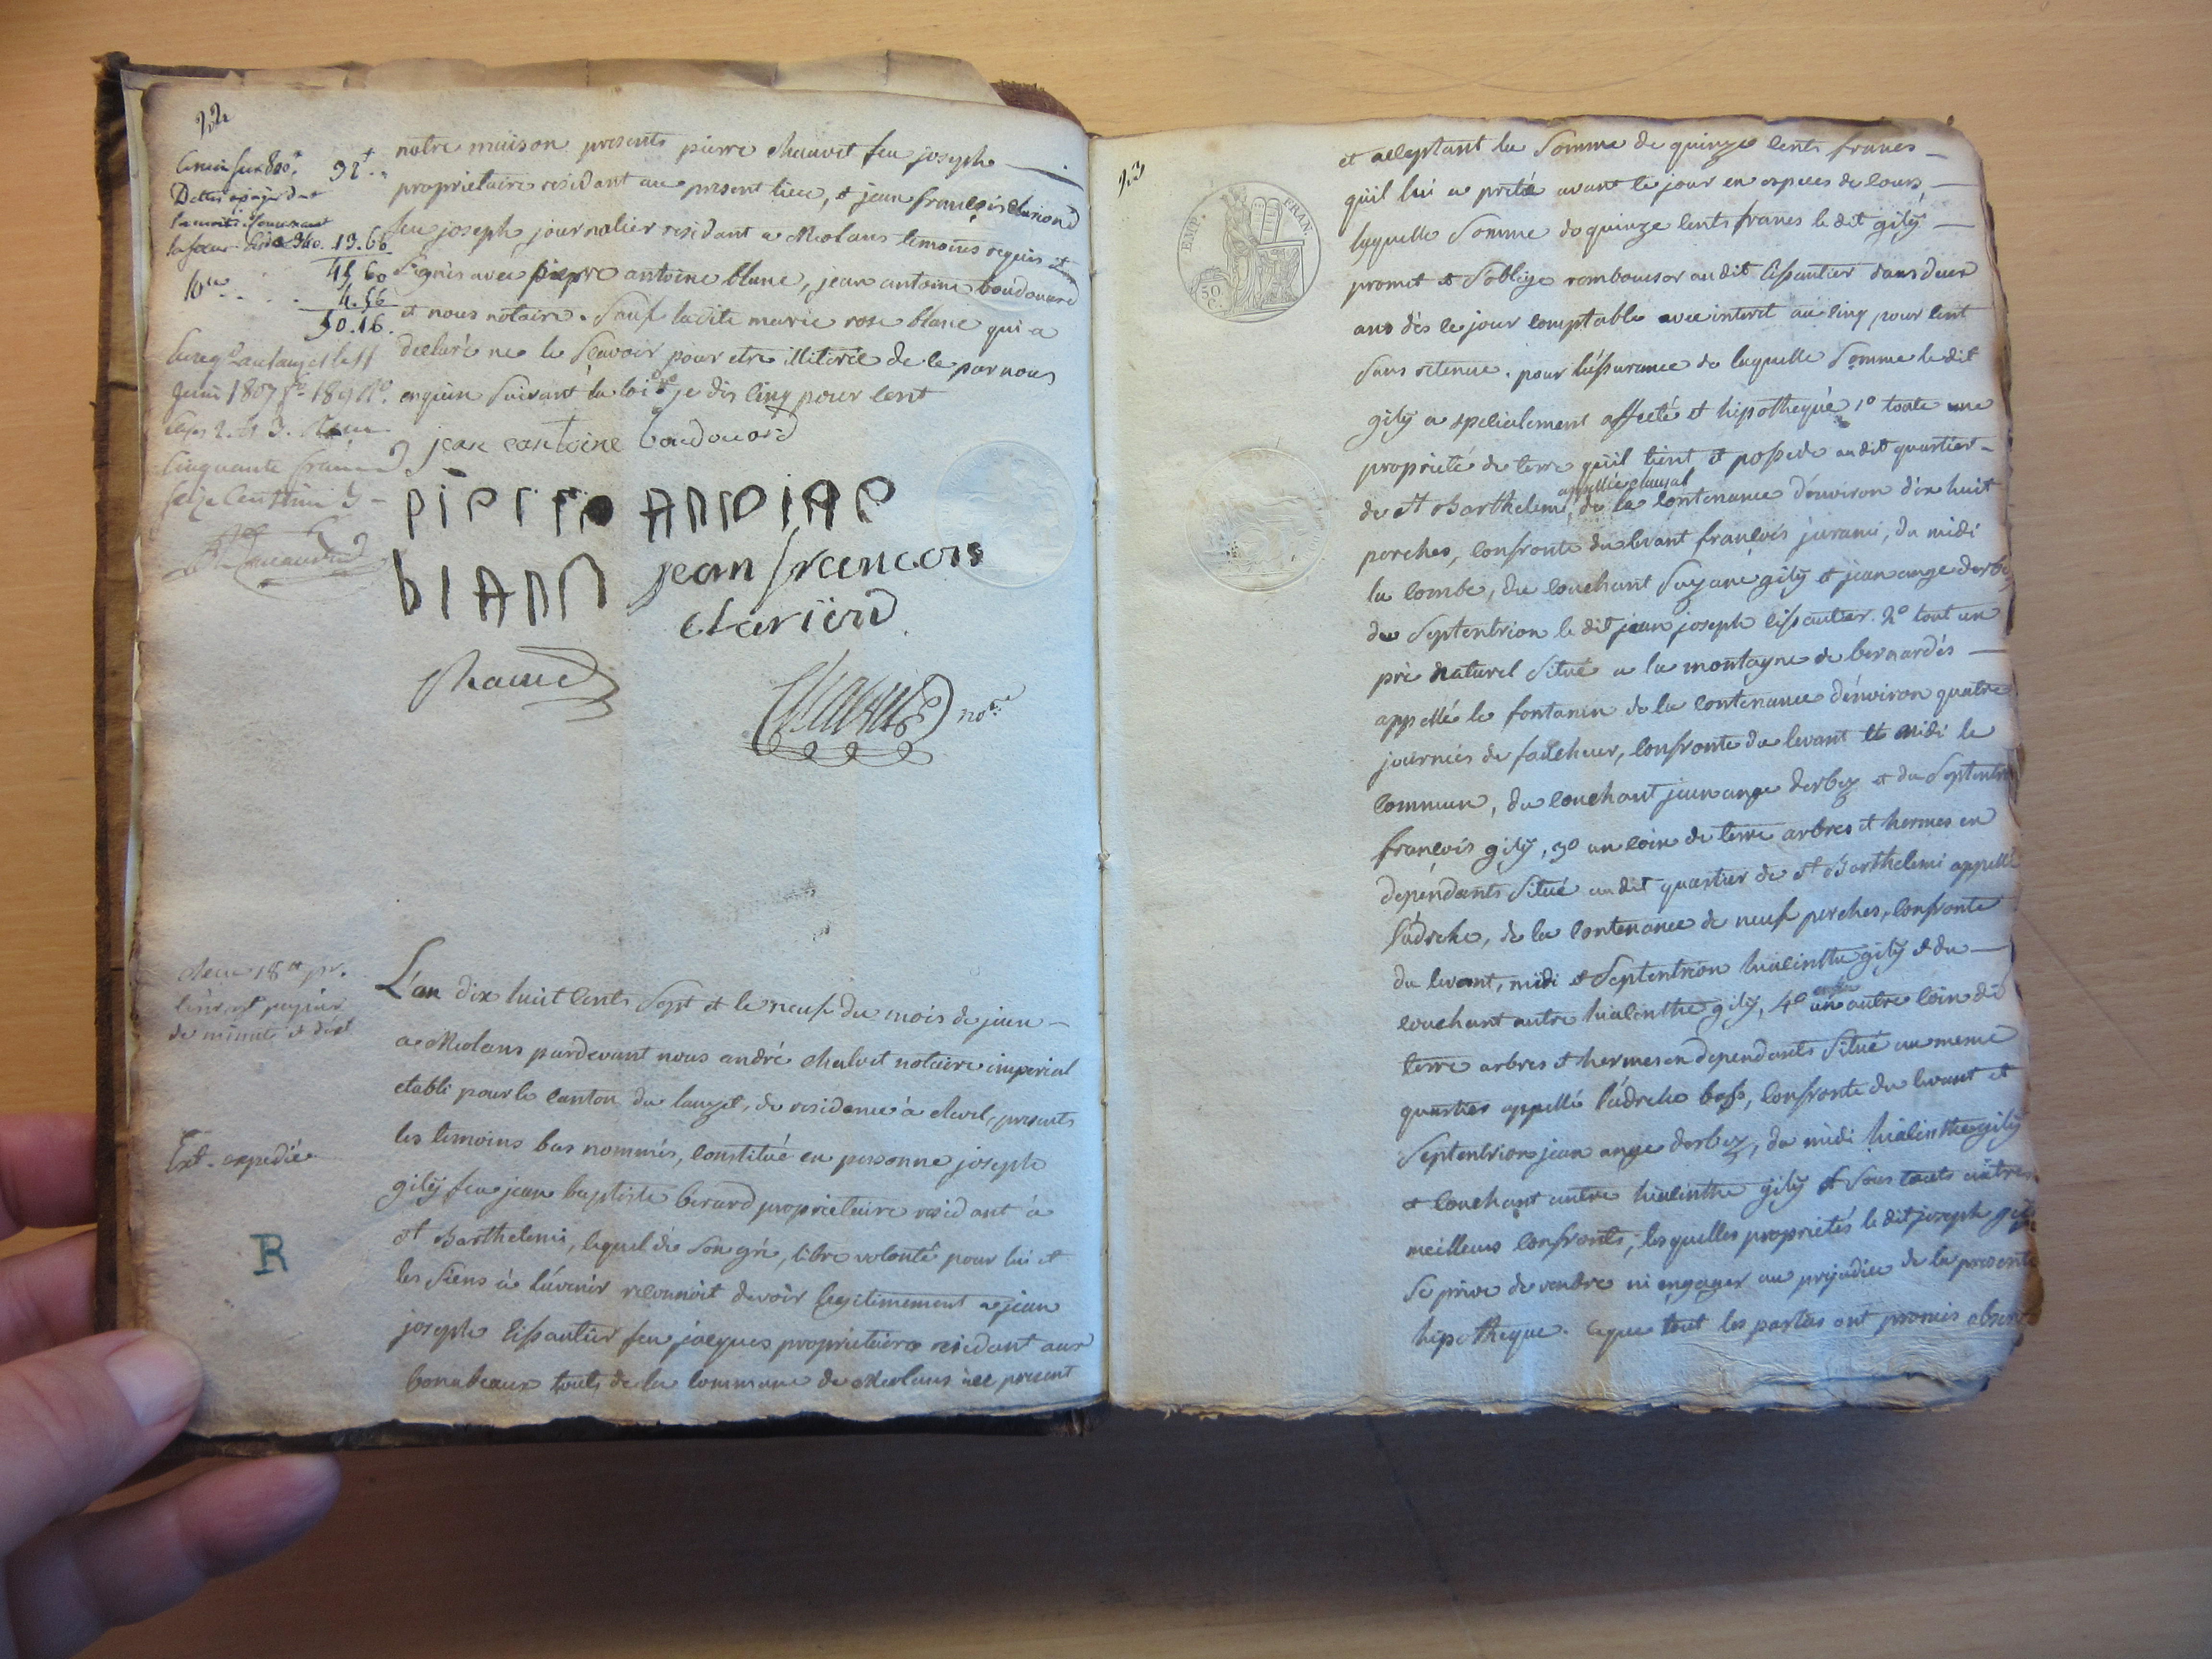 22
notre maison presents pierre chauvet feu joseph
proprietaire residant au present lieu, et jean françois clariond
feu joseph journalier residant a Meolans temoins requis et
signés avec pierre antoine blanc, jean antoine boudouard
et nous notaire. Sauf ladite marie rose blanc qui a
declaré ne le scavoir pour etre illiterée de ce par nous
enquise suivant la loi je dis cinq pour cent
jean eantoine boudouard
PIERRE ANTOINE
blanc jean francois
clariond
no.re
92
340. 13.66
45.60
10me 4.56
50.16.
juin 1807 f.o 189 v.o
cases 2 et 3. Reçu
cinquante francs
seize centimes
L'an dix huit cents sept et le neuf du mois de juin
a Meolans pardevant nous andré chalvet notaire imperial
etabli pour le canton du lauzet, de residence à revel, presents
les temoins bas nommés, constitué en personne joseph
gilÿ feu jean baptiste berard proprietaire residant à
st Barthelemi, lequel de son gré, libre volonté pour lui et
les siens à lávenir reconnoit devoir legitimement a jean
joseph cissautier feu jacques proprietaire residant aux
touts de la commune de Meolans ici present
de minute et droit
Ext. expedié
R
23
EMP. FRAN.
50 C.
et acceptant la somme de quinze cents francs
qu'il lui a preté avant ce jour en especes de cours,
laquelle somme de quinze cents francs le dit gilÿ
promet et soblige rembourser au dit cissautier dans deux
ans dès ce jour comptable avec interet au cinq pour cent
sans retenue. pour lássurance de laquelle somme le dit
gilÿ a specialement affecté et hipothequé 1o toute une
proprieté de terre qu'il tient et possede au dit quartier
appellée clausal
de st Barthelemi, de la contenance d'environ dix huit
perches, confronte du levant françois juramis, du midi
la combe, du couchant Suzane gilÿ et jean ange derbez
du septentrion le dit jean joseph cissautier. 2o tout un
pré naturel situé a la montagne de bernardés
appellé le fontanin de la contenance d'environ quatre
journées de faucheur, confronte du levant et midi le
commun, du couchant jean ange derbez et du septentrion
françois gilÿ, 3o un coin de terre arbres et hermes en
dependants situé au dit quartier de st Barthelemi appellé
l'adreche, de la contenance de neuf perches, confronte
du levant, midi et septentrion hiacinthe gilÿ et du
couchant autre hiacinthe gilÿ, 4o enfin un autre coin de
terre arbres et hermes en dependants situé au meme
quartier appellé l'adreche bass, confronte du levant et
septentrion jean ange derbez, du midi hiacinthe gilÿ
et couchant autre hiacinthe gilÿ et sous touts autres
meilleurs confronts, lesquelles proprietés le dit joseph gilÿ
se prive de vendre ni engager au prejudice de la presente
hipotheque. ce que tout les parties ont promis observer